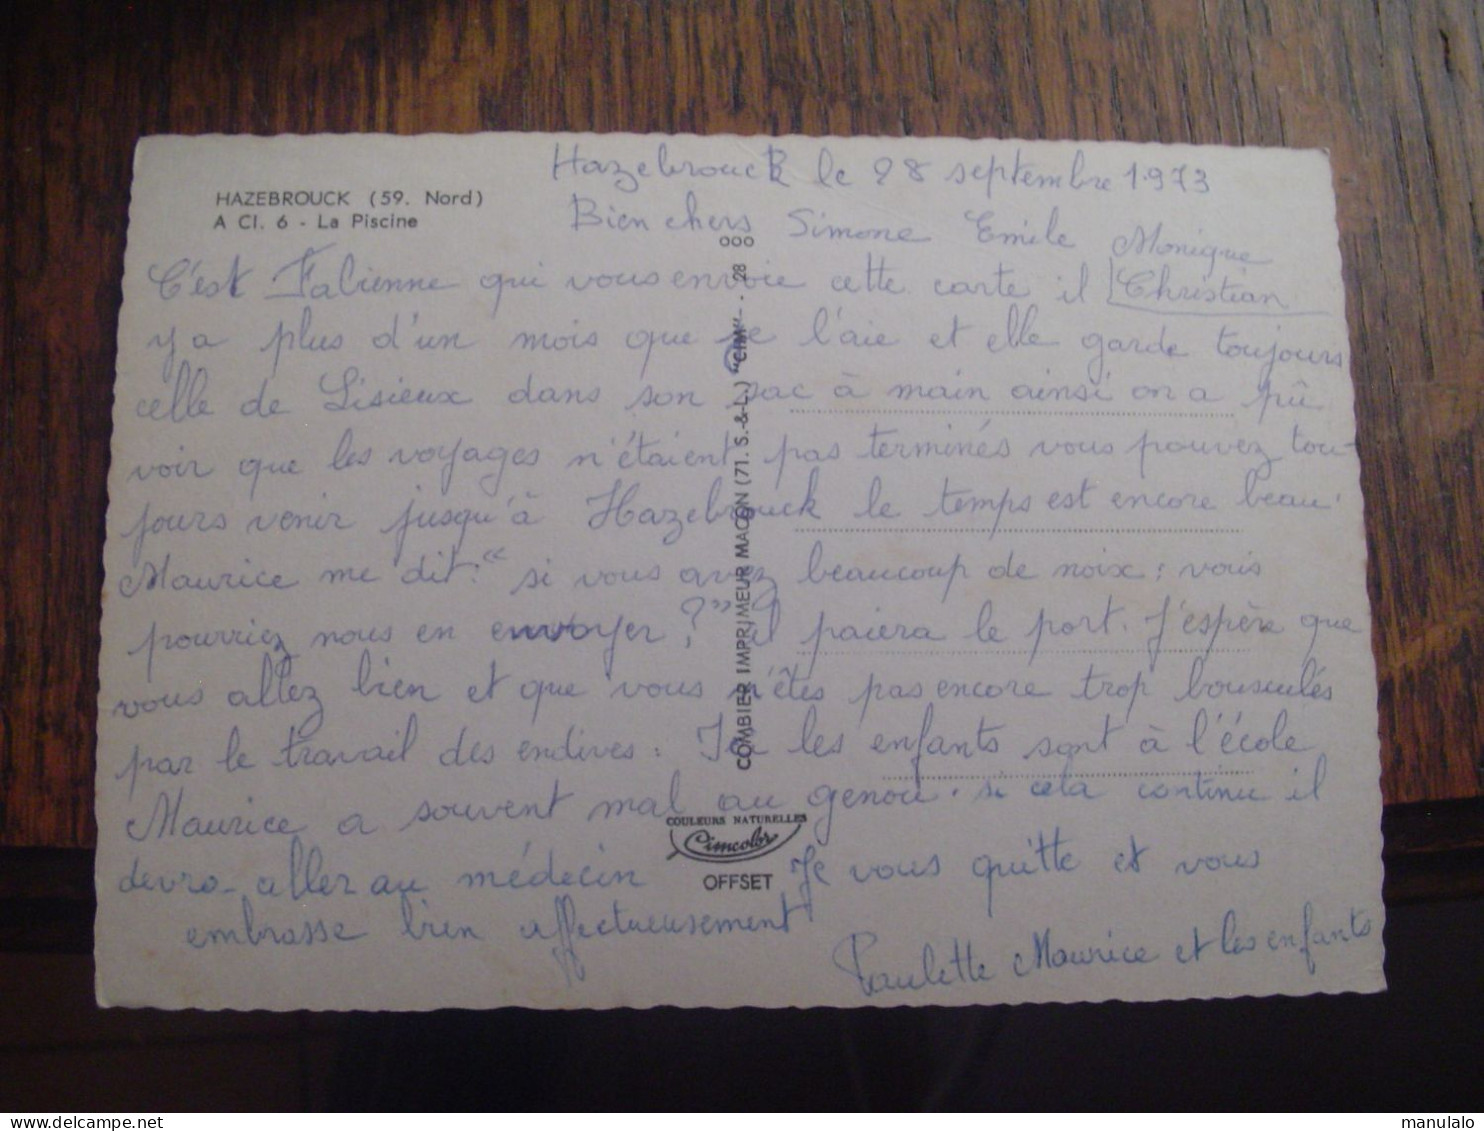 HAZEBROUCK (59. Nord)
A Cl. 6 - La Piscine
Hazebrouck le 28 septembre 1973
Bien chers Simone Emile Monique
Christian
C'est Fabienne qui vous envoie cette carte il
y a plus d'un mois que je l'aie et elle garde toujours
celle de Lisieux dans son sac à main ainsi on a pû
voir que les voyages n'étaient pas terminés vous pouvez tou-
jours venir jusqu'à Hazebrouck le temps est encore beau.
Maurice me dit: "si vous avez beaucoup de noix; vous
pourriez nous en envoyer?" il paiera le port. J'espère que
vous allez bien et que vous n'êtes pas encore trop bousculés
par le travail des endives. Ici les enfants sont à l'école
Maurice a souvent mal au genou. si cela continu il
devra aller au médecin Je vous quitte et vous
embrasse bien affectueusement
Paulette Maurice et les enfants
COMBIER IMPRIMEUR MACON (71. S.-&-L.) "CIM" - 28
ooo
COULEURS NATURELLES
Cimcolor
OFFSET
www.delcampe.net
manulalo